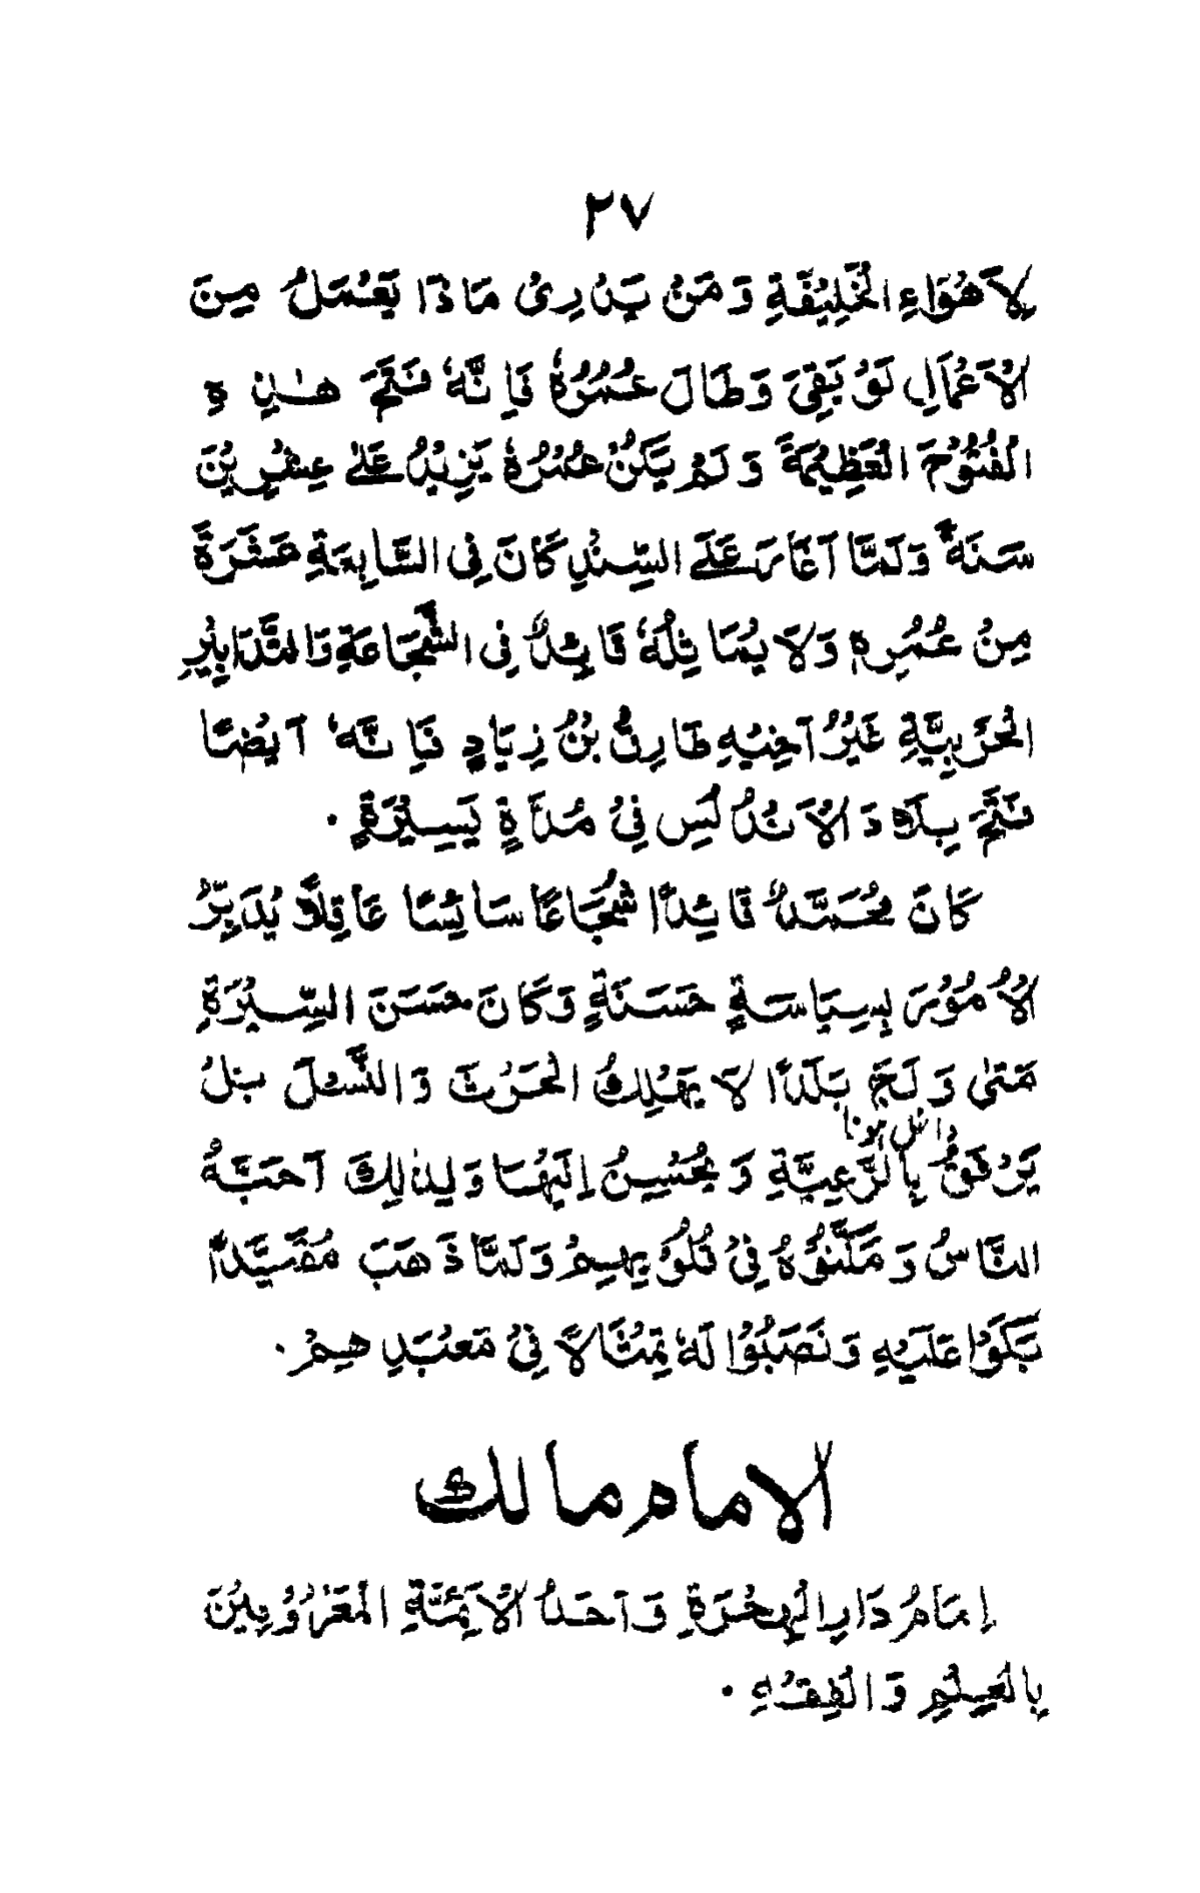 ٢٧
لِاَهْوَاءِ الْخَلِيْفَةِ وَمَنْ يَدْرِىْ مَاذَا يَعْمَلُ مِنَ
الْاَعْمَالِ لَوْ بَقِىَ وَطَالَ عُمُرُهٗ فَاِنَّهٗ فَتَحَ هٰذِهِ
الْفُتُوْحَ الْعَظِيْمَةَ وَلَمْ يَكُنْ عُمُرُهٗ يَزِيْدُ عَلٰى عِشْرِيْنَ
سَنَةً وَلَمَّا اَغَارَ عَلَى السِّنْدِ كَانَ فِى السَّابِعَةِ عَشَرَةَ
مِنْ عُمُرِهٖ وَلَا يُمَاثِلُهٗ قَائِدٌ فِى الشَّجَاعَةِ وَالتَّدَابِيْرِ
الْحَرْبِيَّةِ غَيْرُ اَخِيْهِ طَارِقُ بْنُ زِيَادٍ فَاِنَّهٗ اَيْضًا
فَتَحَ بِلَادَ الْاَنْدُلُسِ فِىْ مُدَّةٍ يَسِيْرَةٍ .
كَانَ مُحَمَّدٌ قَائِدًا شُجَاعًا سَائِسًا عَاقِلًا يُدَبِّرُ
الْاُمُوْرَ بِسِيَاسَةٍ حَسَنَةٍ وَكَانَ حَسَنَ السِّيْرَةِ
مَتٰى وَلَجَ بَلَدًا لَا يُهْلِكُ الْحَرْثَ وَالنَّسْلَ بَلْ
داخل ہونا
يَرْفَقُ بِالرَّعِيَّةِ وَيُحْسِنُ اِلَيْهَا وَلِذٰلِكَ اَحَبَّهُ
النَّاسُ وَمَكَّنُوْهُ فِىْ قُلُوْبِهِمْ وَلَمَّا ذَهَبَ مُقَيَّدًا
بَكَوْا عَلَيْهِ وَنَصَبُوْا لَهٗ تِمْثَالًا فِىْ مَعْبَدِهِمْ .
الامام مالك
اِمَامُ دَارِ الْهِجْرَةِ وَاَحَدُ الْاَئِمَّةِ الْمَعْرُوْفِيْنَ
بِالْعِلْمِ وَالْفِقْهِ .